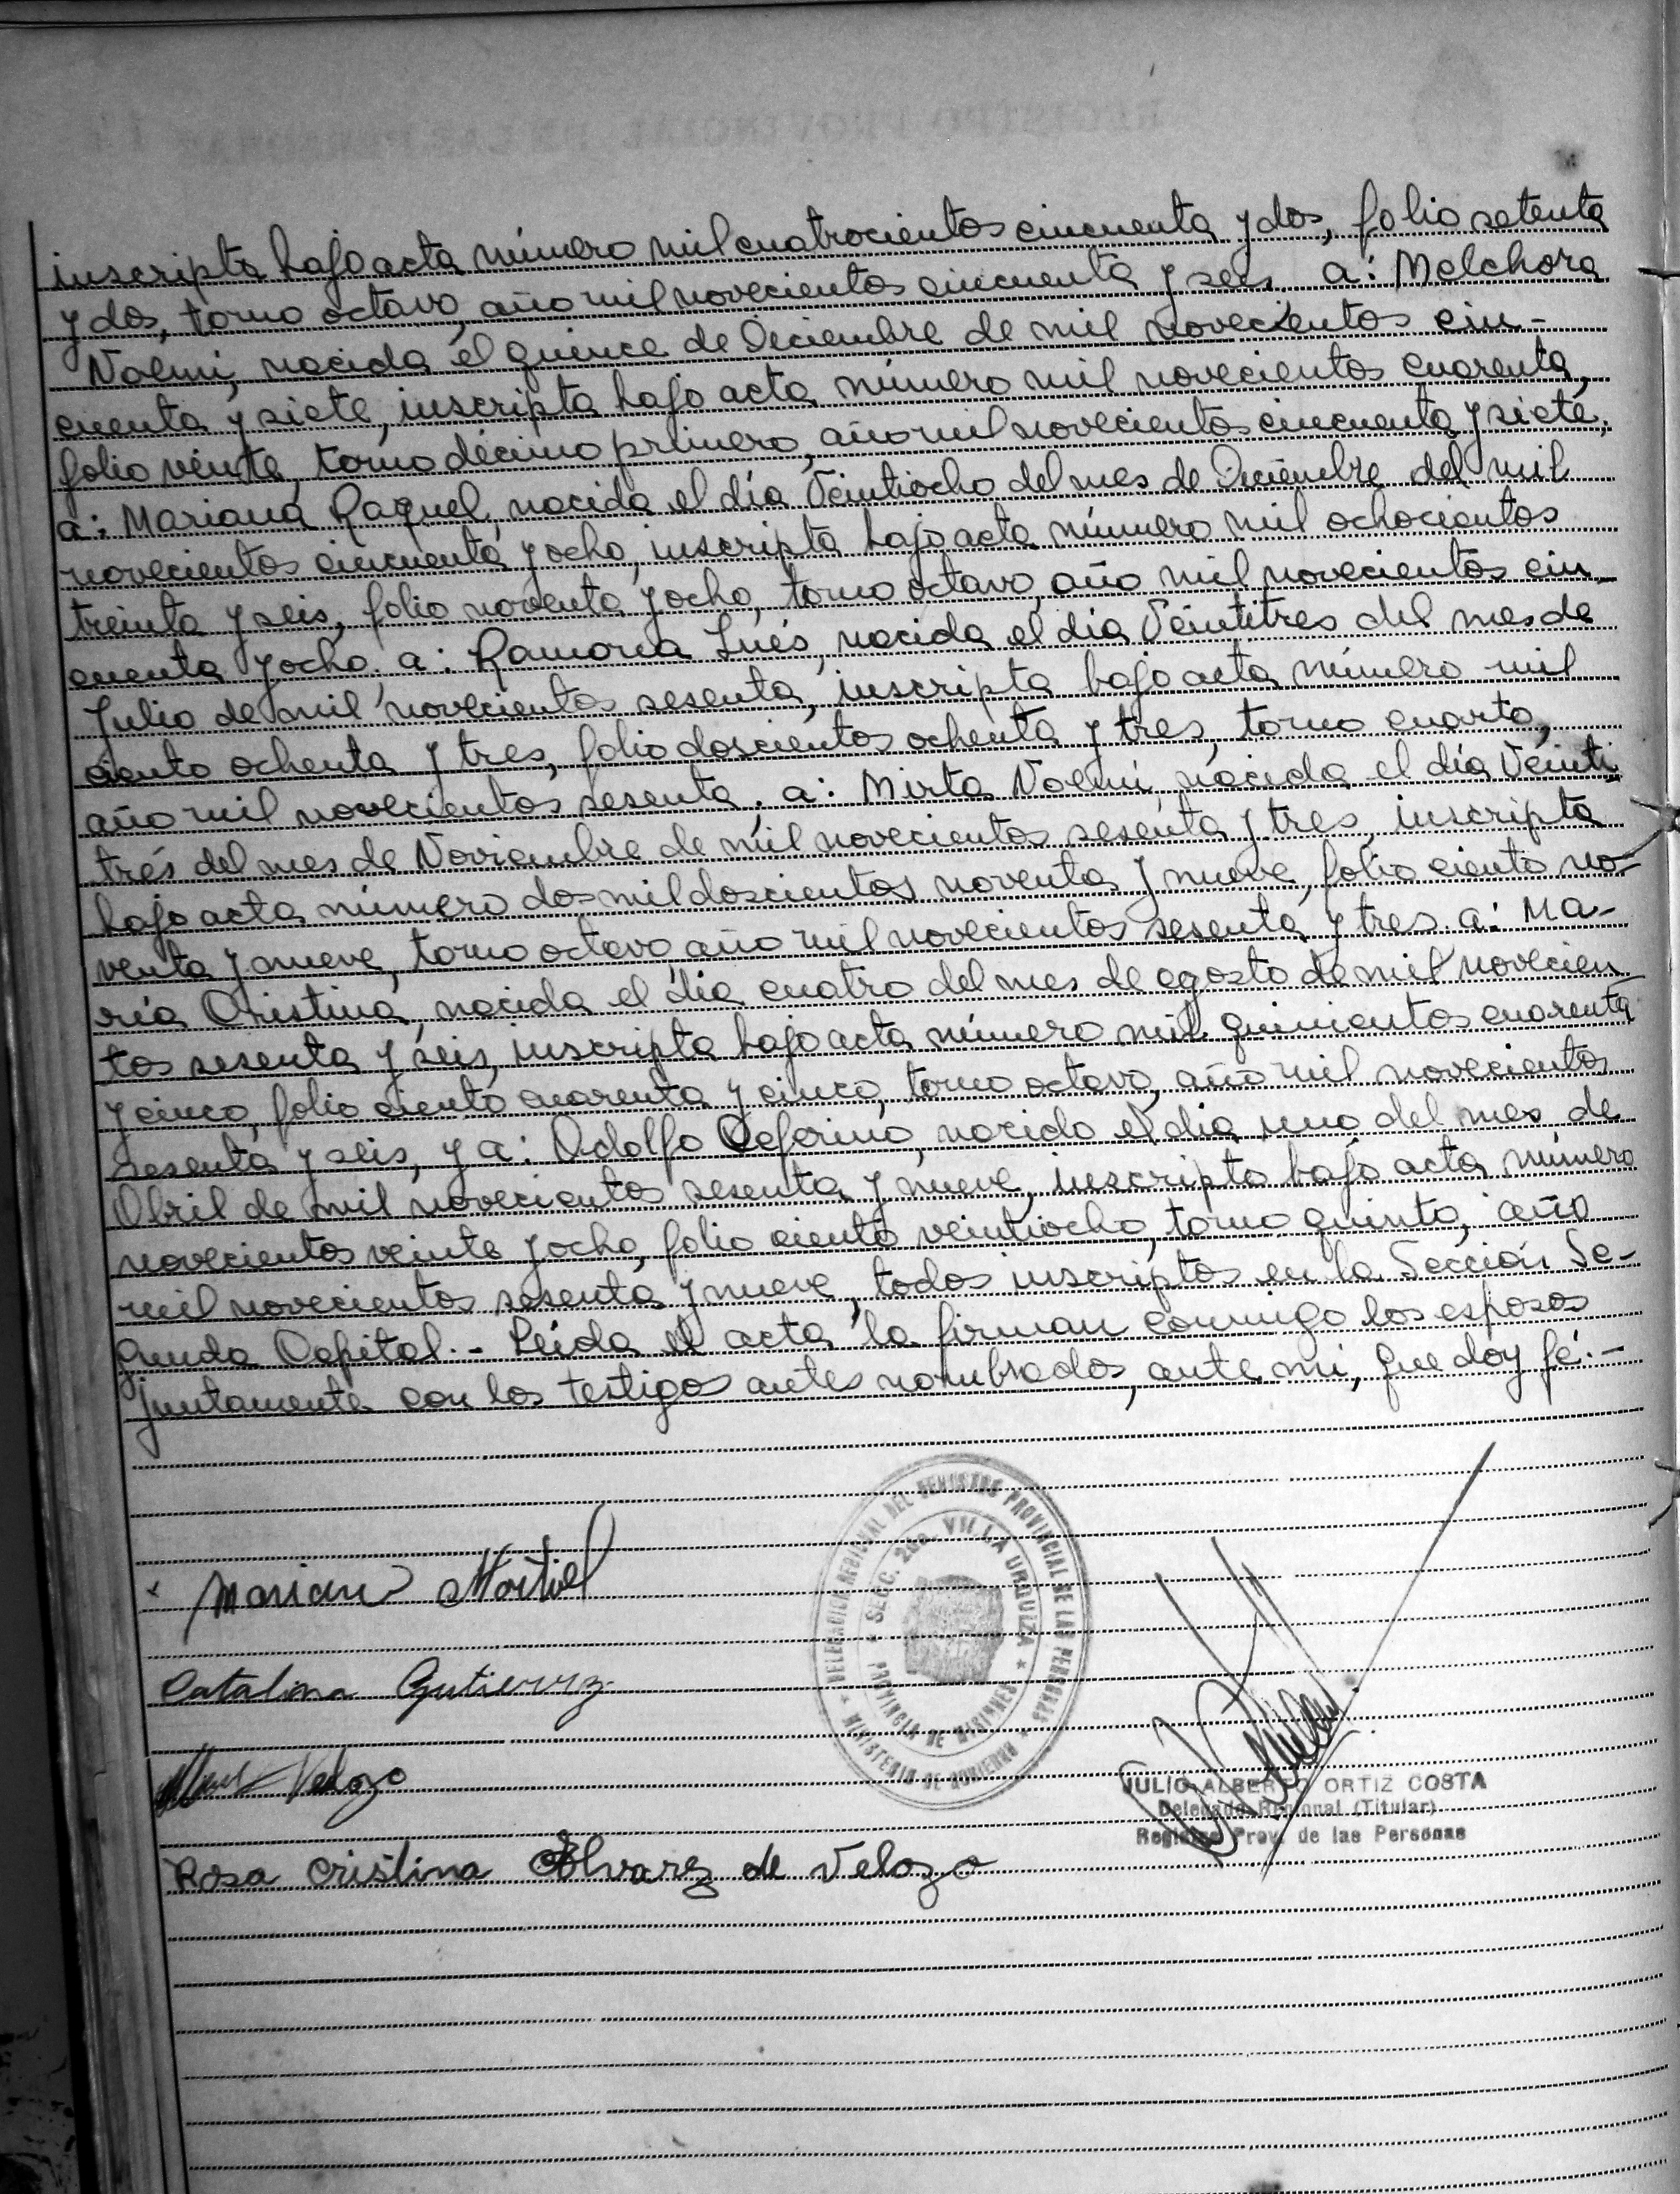 inscripta bajo acta número mil cuatrocientos cincuenta y dos, folio setenta
y dos, tomo octavo, año mil novecientos cincuenta y seis. a: Melchora
Noemi, nacida el quince de Diciembre de mil novecientos cin-
cuenta y siete, inscripta bajo acta número mil novecientos cuarenta,
folio veinte, tomo décimo primero, año mil novecientos cincuenta y siete;
a: Mariana Raquel, nacida el día Veintiocho del mes de Diciembre del mil
novecientos cincuenta y ocho, inscripta bajo acta número mil ochocientos
treinta y seis, folio noventa y ocho, tomo octavo, año mil novecientos cin
cuenta y ocho. a: Ramona Inés, nacida el día Veintitres del mes de
Julio de mil novecientos sesenta, inscripta bajo acta número mil
ciento ochenta y tres, folio doscientos ochenta y tres, tomo cuarto,
año mil novecientos sesenta. a: Mirta Noemí, nacida el día Veinti
trés del mes de Noviembre de mil novecientos sesenta y tres, inscripta
bajo acta número dos mil doscientos noventa y nueve, folio ciento no-
venta y nueve, tomo octavo, año mil novecientos sesenta y tres. a: Ma-
ría Cristina, nacida el día cuatro del mes de agosto de mil novecien
tos sesenta y seis, inscripta bajo acta número mil quinientos cuarenta
y cinco, folio ciento cuarenta y cinco, tomo octavo, año mil novecientos
sesenta y seis, y a: Adolfo Ceferino, nacido el día uno del mes de
Abril de mil novecientos sesenta y nueve, inscripto bajo acta número
novecientos veinte y ocho, folio ciento veintiocho, tomo quinto, año
mil novecientos sesenta y nueve, todos inscriptos en la Sección Se-
gunda Capital.- Leída el acta la firman conmigo los esposos
juntamente con los testigos antes nombrados, ante mi, que doy fé.-
DELEGACION REGIONAL DEL REGISTRO PROVINCIAL DE LAS PERSONAS
MINISTERIO DE GOBIERNO
SECC. 2da. VILLA URQUIZA
PROVINCIA DE MISIONES
x Marian Mortiel
Catalina Gutierrez
Velozo
JULIO ALBERTO ORTIZ COSTA
Delegado Regional (Titular)
Registro Prov. de las Personas
Rosa Cristina Alvarez de Velozo